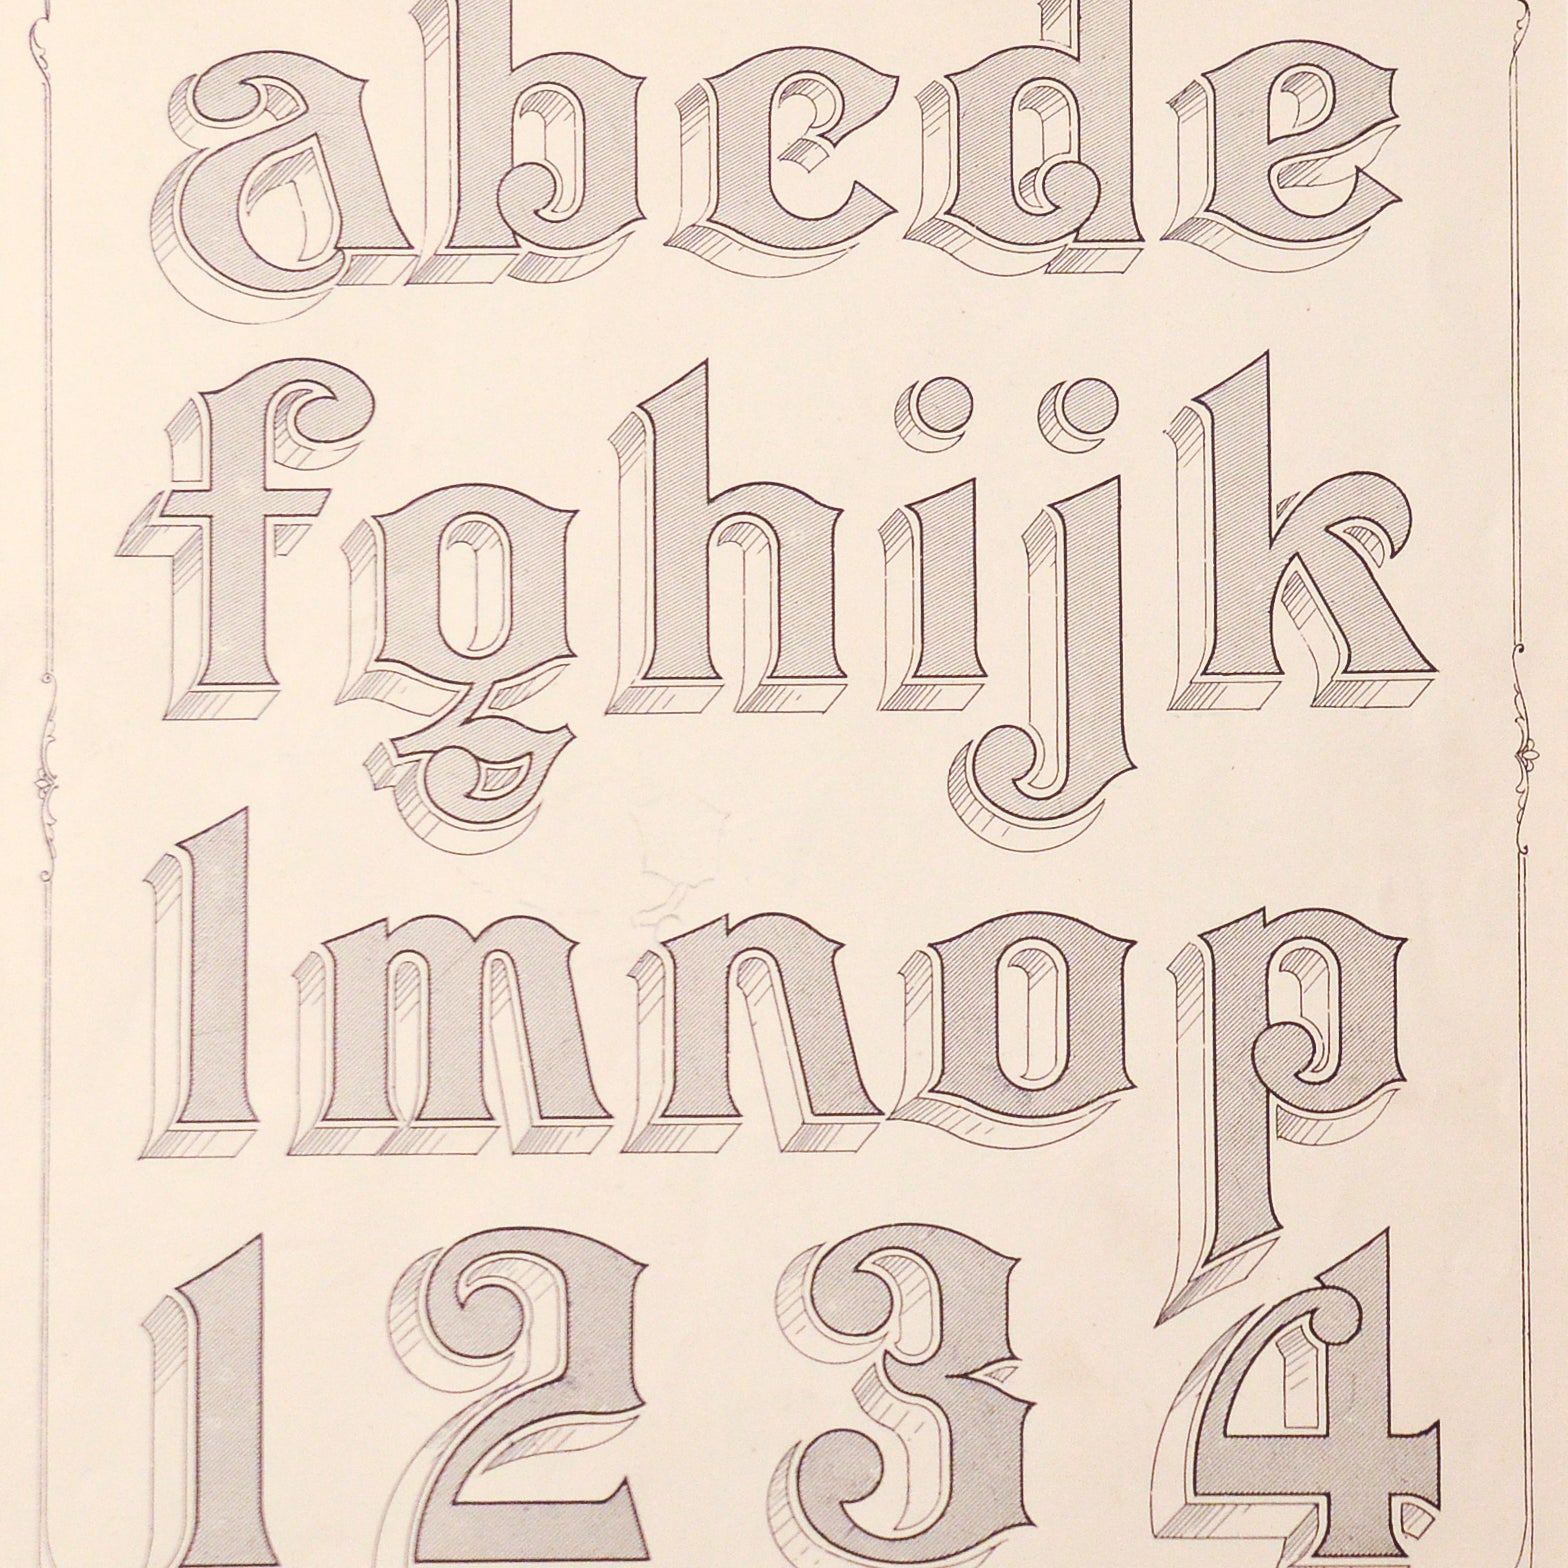 abcde
fghijk
lmnop
1234